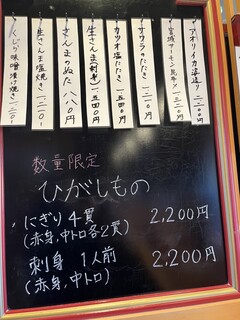 アオリイカ姿造り 二二〇〇
宮城サーモン昆布〆 一三二〇
サワラのたたき 一二一〇円
カツオ塩たたき 一五四〇円
生さんま(刺身) 一五四〇円
さんまのぬた 八八〇円
生さんま塩焼き 一三二〇
くじら味噌漬け焼き 一三二〇
数量限定
ひがしもの
にぎり4貫 2,200円
(赤身,中トロ各2貫)
刺身 1人前 2,200円
(赤身,中トロ)